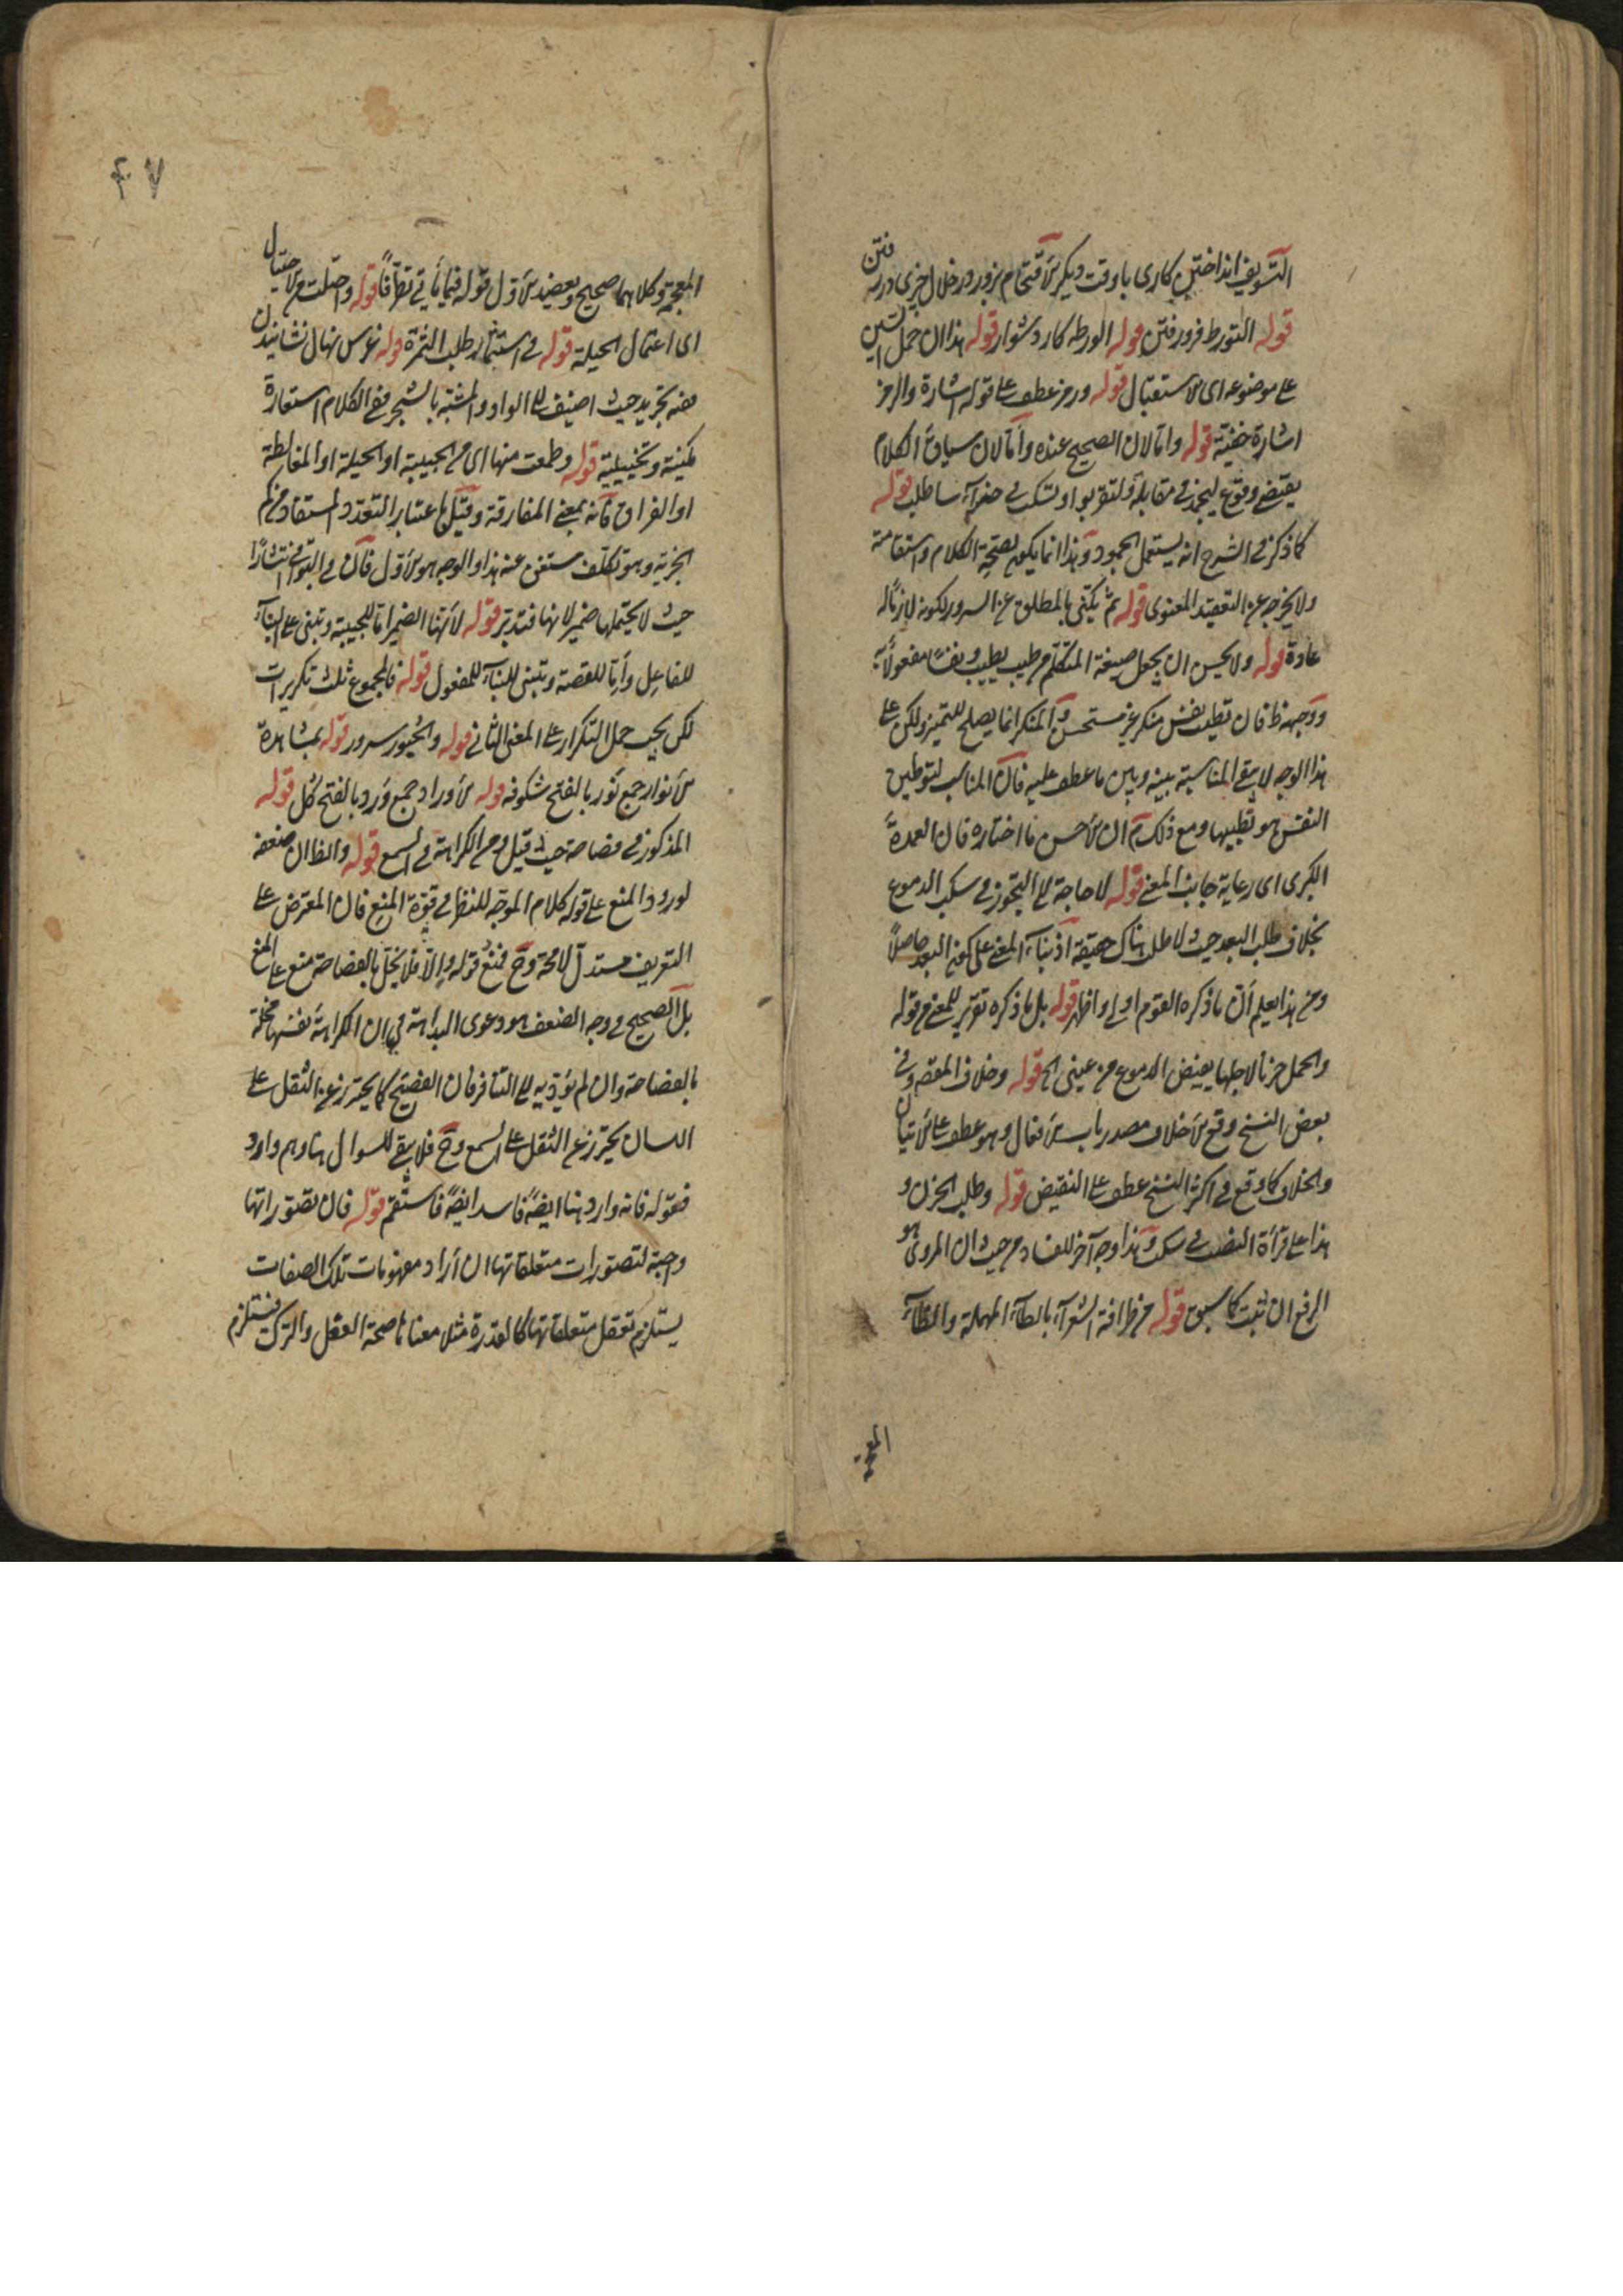 التسويف انداختن كارى با وقت ديكر الاقتحام بزور در خلال چيزى در رفتن
قوله التورط فرو رفتن قوله الورطه كار دشوار قوله هذا ان حمل السين
على موضوعه اى الاستقبال قوله ورمز عطف على قوله اشارة والرمز
اشارة خفية قوله واما لان الصحيح عنده واما لان سياق الكلام
يقتضى وقوع ليجمد فى مقابلة لتقربوا وتسكب فى جزاء ساطلب قوله
كما ذكر فى الشرح انه يستعمل الجمود وهذا انما يكون لصحة الكلام واستقامته
ولا يخرجه عن التعقيد المعنوى قوله ثم يكتفى بالمطلق عن السرور لكونه لازما له
عادة قوله ولا يحسن ان يجعل صيغة المتكلم من طيب يطيب ونفسا مفعولا به
ووجهه ظ فان تطييب نفس منكر غير مستحسن والمنكر انما يصلح للتميز ولكن على
هذا الوجه لا يبقى المناسبة بينه وبين ما عطف عليه فان المناسب لتوطين
النفس هو تطييبها ومع ذلك ان الاحسن ما اختاره فان العمدة
الكبرى اى رعاية جانب المعنى قوله لا حاجة الى التجوز فى سكب الدموع
بخلاف طلب البعد حيث لا طلب هناك حقيقة اذ بناء المعنى على كون البعد حاصلا
ومن هذا يعلم ان ما ذكره القوم اولى واظهر قوله بل ما ذكره تقرير للمعنى من قوله
والحمل حزنا لاجلها يفيض الدموع من عينى الخ قوله وخلاف المقصود فى
بعض النسخ وقع الاخلاف مصدر باب الافعال وهو عطف على الاتيان
والخلاف كما وقع فى اكثر النسخ عطف على النقيض قوله وطلب الحزن و
هذا على قرأة النصب فى تسكب وهذا وجه آخر للفساد من حيث ان المروى هو
الرفع ان ثبت كما سبق قوله من ظرافة الشعراء بالطاء المهملة والظاء
المعجمة
٤٧
المعجمة وكلاهما صحيح ويعضد الاول قوله فيما يأتى تظرفا قوله واحتلت من الاحتيال
اى اعتمال الحيلة قوله فى استثمار طلب الثمرة قوله غرس نهال نشانيدن
ففيه تجريد حيث اضيف الى الواو والمشبه بالشجر ففى الكلام استعارة
مكنية وتخييلية قوله وطمعت منها اى من الحبيبة او الحيلة او المغالطة
او الفراق فانه بمعنى المفارقة وقيل باعتبار التعدد المستفاد من
الجزية وهو تكلف مستغنى عنه هذا والوجه هو الاول فان فى البواقى انتشارا
حيث لا يحتملها ضمير لانها فتدبر قوله لانها الضمير اما للحبيبة وتبنى على البناء
للفاعل واما للقصة وتبنى للبناء للمفعول قوله فالمجموع ثلث تكريرات
لكن يجب حمل التكرار على المعنى الثانى قوله والحبور سرور قوله بمشاهدة
الانوار جمع نور بالفتح شكوفه قوله الاوراد جمع ورد بالفتح كل قوله
المذكور فى فصاحة حيث قيل ومن الكراهة فى السمع قوله والظ ان ضعفه
لورود المنع على قوله كلام الموجه للنظر فى قوة المنع فان المعترض على
التعريف مستدل لا محة وح فمنع قوله والا فلا يخل بالفصاحة منع على المنع
بل الصحيح فى وجه الضعف هو دعوى البداهة فى ان الكراهة نفسها مخلة
بالفصاحة وان لم يؤد به الى التنافر فان الفصيح كما يحترز عن الثقل على
اللسان يحترز عن الثقل على السمع وح فلا يبقى للسوال هناوهم واورد
فقوله فانه وارد هنا ايضا فاسد ايضا فاستقم قوله فان تصوراتها
واجبة لتصورات متعلقاتها ان اراد مفهومات تلك الصفات
يستلزم تعقل متعلقاتها كالقدرة مثلا معناها صحة الفعل والترك فيستلزم